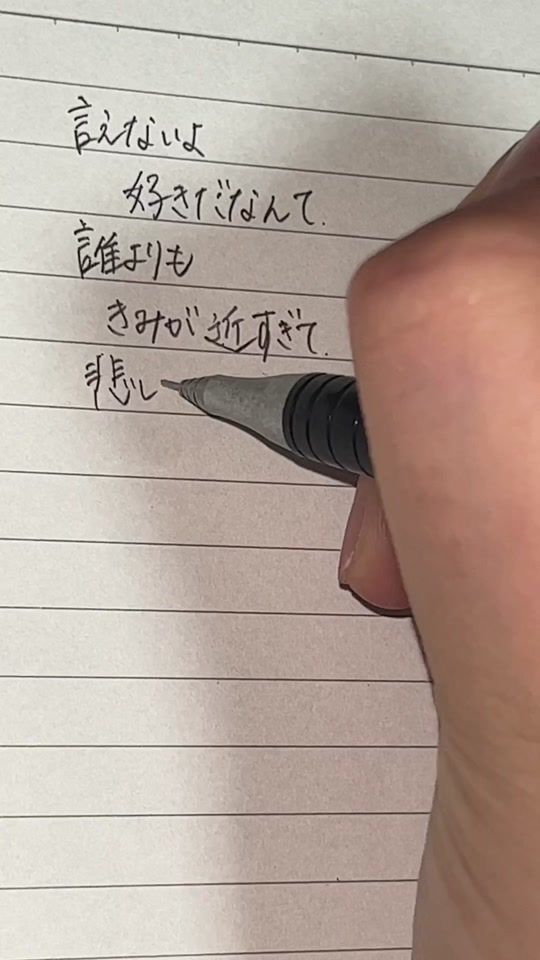 言えないよ
好きだなんて.
誰よりも
きみが近すぎて.
悲し